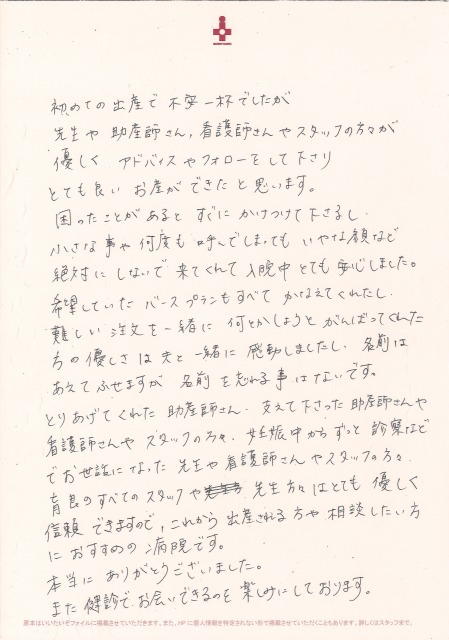 初めての出産で不安一杯でしたが
先生や助産師さん、看護師さんやスタッフの方々が
優しくアドバイスやフォローをして下さり
とても良いお産ができたと思います。
困ったことがあるとすぐにかけつけて下さるし、
小さな事や何度も呼んでしまってもいやな顔など
絶対にしないで来てくれて入院中とても安心しました。
希望していたバースプランもすべてかなえてくれたし、
難しい注文を一緒に何とかしようとがんばってくれた
方の優しさは夫と一緒に感動しましたし、名前は
あえてふせますが名前を忘れる事はないです。
とりあげてくれた助産師さん、支えて下さった助産師さんや
看護師さんやスタッフの方々、妊娠中からずっと診察など
でお世話になった先生や看護師さんやスタッフの方々、
育良のすべてのスタッフや先生方々はとても優しく
信頼できますので、これから出産される方や相談したい方
におすすめの病院です。
本当にありがとうございました。
また健診でお会いできるのを楽しみにしております。
原本はいいたいぞファイルに掲載させていただきます。また、HPに個人情報を特定されない形で掲載させていただくこともあります。詳しくはスタッフまで。